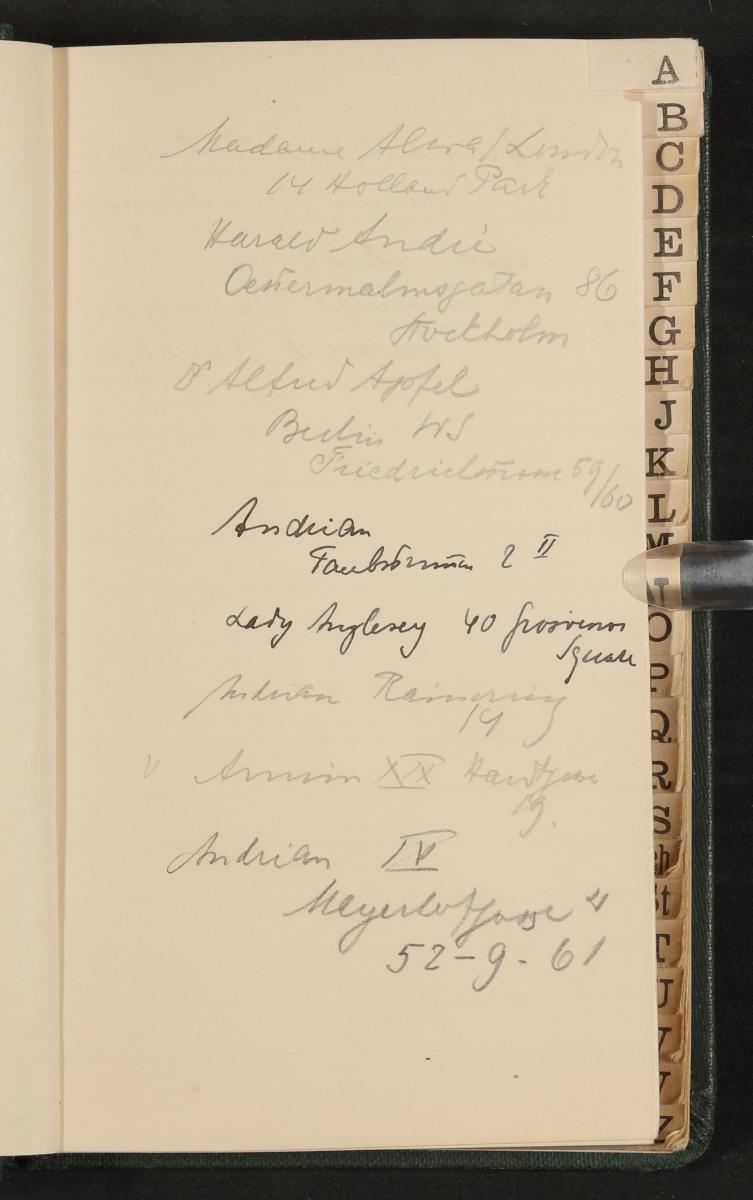 Madame Alvra / London
14 Holland Park
Harald André
Oestermalmsgatan 86
Stockholm
Dr Alfred Apfel
Berlin W8
Friedrichstrasse 59/60
Andrian
2 II
Lady Anglesey 40 Grosvenor
Square
Andrian Rainerring
14
v Arnim XIX Hardtgasse
19.
Andrian IV
Meyerhofgasse 4
52-9-61
A
B
C
D
E
F
G
H
J
K
L
M
N
O
P
Q
R
S
Sch
St
T
U
V
W
Z